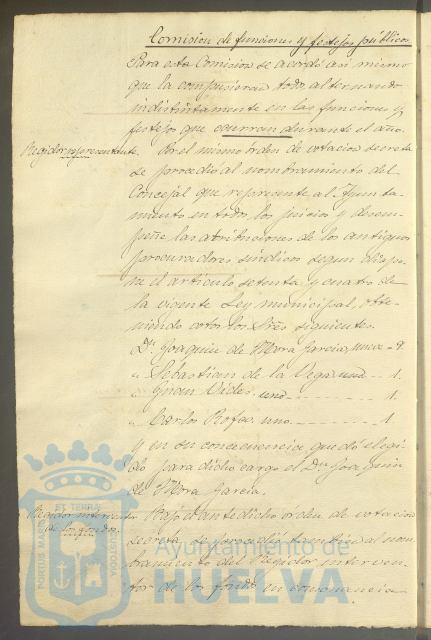 Comision de funciones y festejos públicos.
Para esta Comision se acordó asi mismo
que la compusieran todos, alternando
indistintamente en las funciones y
festejos que ocurran durante el año.
Regidor representante. Por el mismo órden de votacion secreta
se procedió al nombramiento del
Concejal que represente al Ayunta-
miento en todos los juicios y desem-
peñe las atribuciones de los antiguos
procuradores sindicos segun dispo-
ne el artículo setenta y cuatro de
la vigente Ley municipal, obte-
niendo votos los Sres siguientes.
Dn. Joaquin de Mora Garcia, nueve - 9.
" Sebastian de la Vega, uno - - 1.
" Juan Vides, uno - - - - - 1.
" Carlos Rofao, uno - - - - - 1
y en su concecuencia quedó elegi-
do para dicho cargo el Dn Joaquin
de Mora Garcia.
Regidor interventor
de los fondos.
Bajo el antedicho órden de votacion
secreta se procedió tambien al nom-
bramiento del Regidor interven-
tor de los fondos en consonancia
PORTUS MARIS ET TERRAE CUSTODIA
Ayuntamiento de
HUELVA